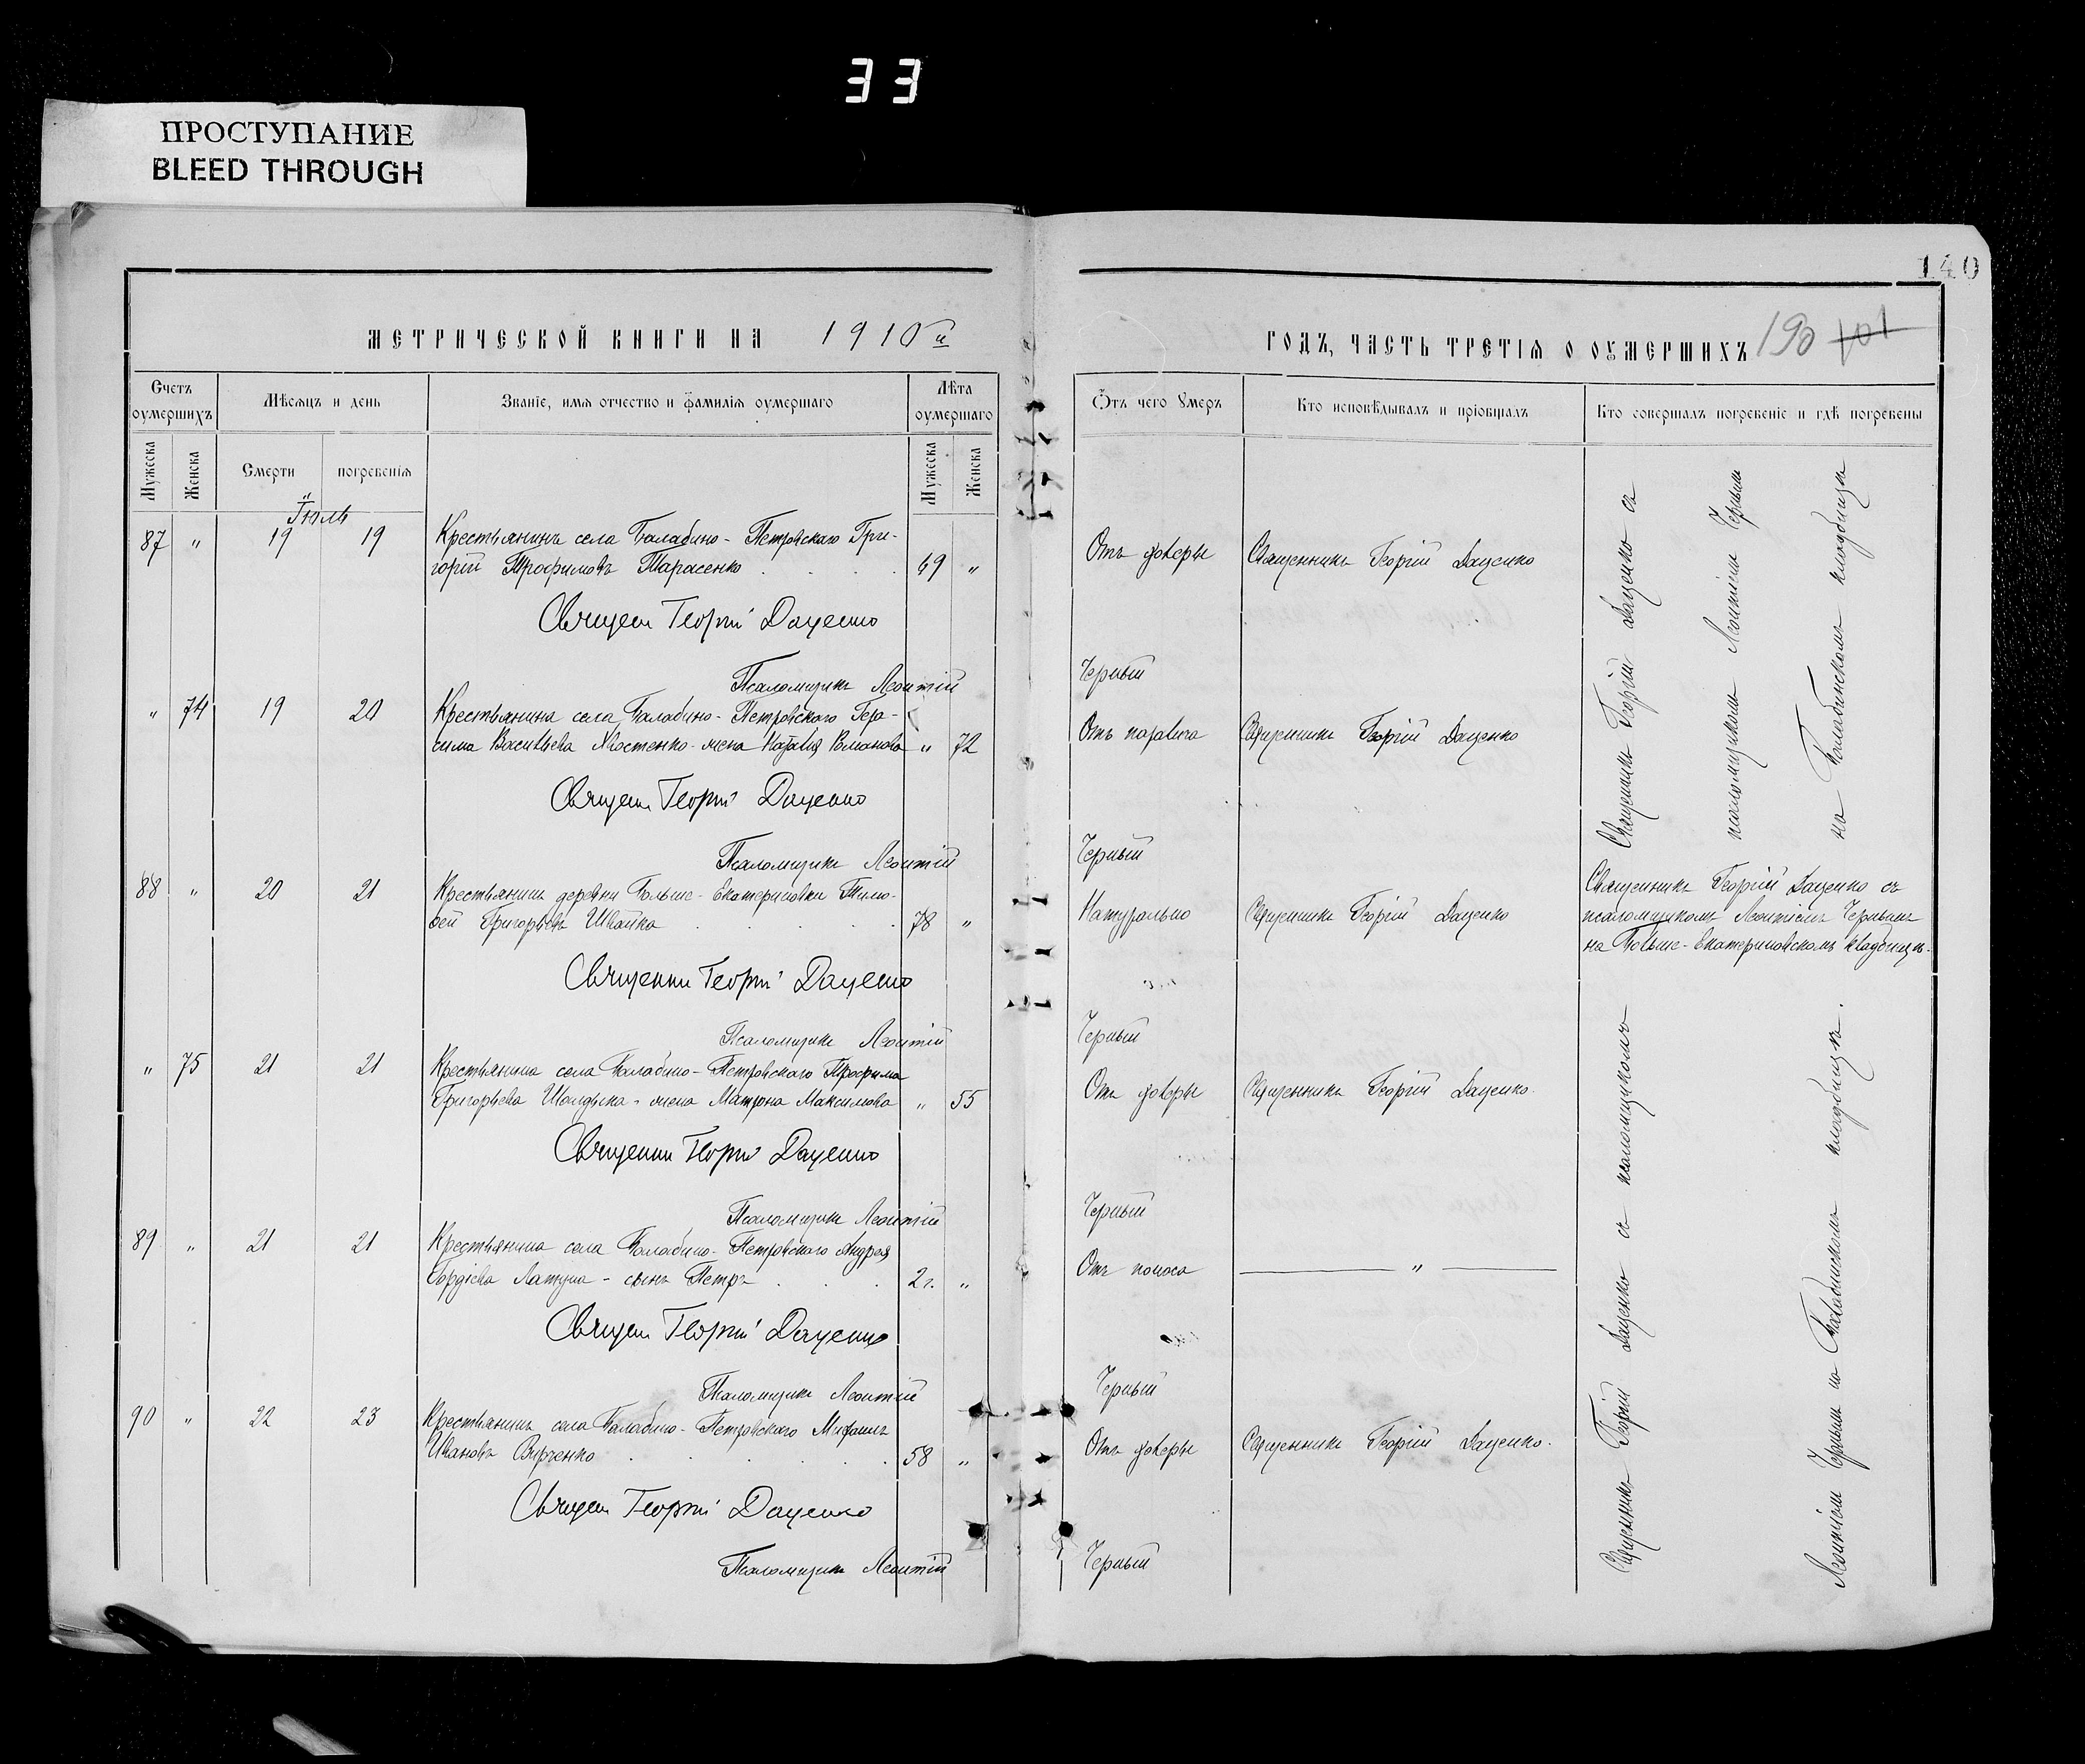 33
ПРОСТУПАНИЕ
BLEED THROUGH
140
МЕТРИЧЕСКОЙ КНИГИ НА 1910 й
ГОДЪ, ЧАСТЬ ТРЕТІЯ О ОУМЕРШИХЪ 190 101
Счетъ оумершихъ
Мѣсяцъ и день
Званіе, имя отчество и фамилія оумершаго
Лѣта оумершаго
Отъ чего Умеръ
Кто исповѣдывалъ и пріобщалъ
Кто совершалъ погребеніе и гдѣ погребены
Мужеска
Женска
Смерти
погребенія
Мужеска
Женска
Іюль
87 " 19 19 Крестьянинъ села Балабино-Петровскаго Гри-
горій Трофимовъ Тарасенко 69 " Отъ холеры Священникъ Георгій Даценко
Священ Георгій Даценко
Псаломщикъ Леонтій Черный
Священникъ Георгій Даценко съ
псаломщикомъ Леонтіемъ Чернымъ
на Балабинскомъ кладбищѣ
" 74 19 20 Крестьянина села Балабино-Петровскаго Гера-
сима Васильева Хвостенко жена Наталія Романова " 72 Отъ паралича Священникъ Георгій Даценко
Священ Георгій Даценко
Псаломщикъ Леонтій Черный
88 " 20 21 Крестьянинъ деревни Больше-Екатериновки Тимо-
фей Григорьевъ Швайка 78 " Натурально Священникъ Георгій Даценко
Священникъ Георгій Даценко съ
псаломщикомъ Леонтіемъ Чернымъ
на Больше-Екатериновскомъ кладбищѣ.
Священни Георгій Даценко
Псаломщикъ Леонтій Черный
" 75 21 21 Крестьянина села Балабино-Петровскаго Трофима
Григорьева жена Матрона Максимова " 55 Отъ холеры Священникъ Георгій Даценко.
Священни Георгій Даценко
Псаломщикъ Леонтій Черный
89 " 21 21 Крестьянина села Балабино-Петровскаго Андрея
Гордіева - сынъ Петръ 2 г. " Отъ поноса "
Священ Георгій Даценко
Псаломщикъ Леонтій Черный
90 " 22 23 Крестьянинъ села Балабино-Петровскаго Митрофанъ
Ивановъ 58 " Отъ холеры Священникъ Георгій Даценко.
Священ Георгій Даценко
Псаломщикъ Леонтій Черный
Священникъ Георгій Даценко съ псаломщикомъ
Леонтіемъ Чернымъ на Балабинскомъ кладбищѣ.